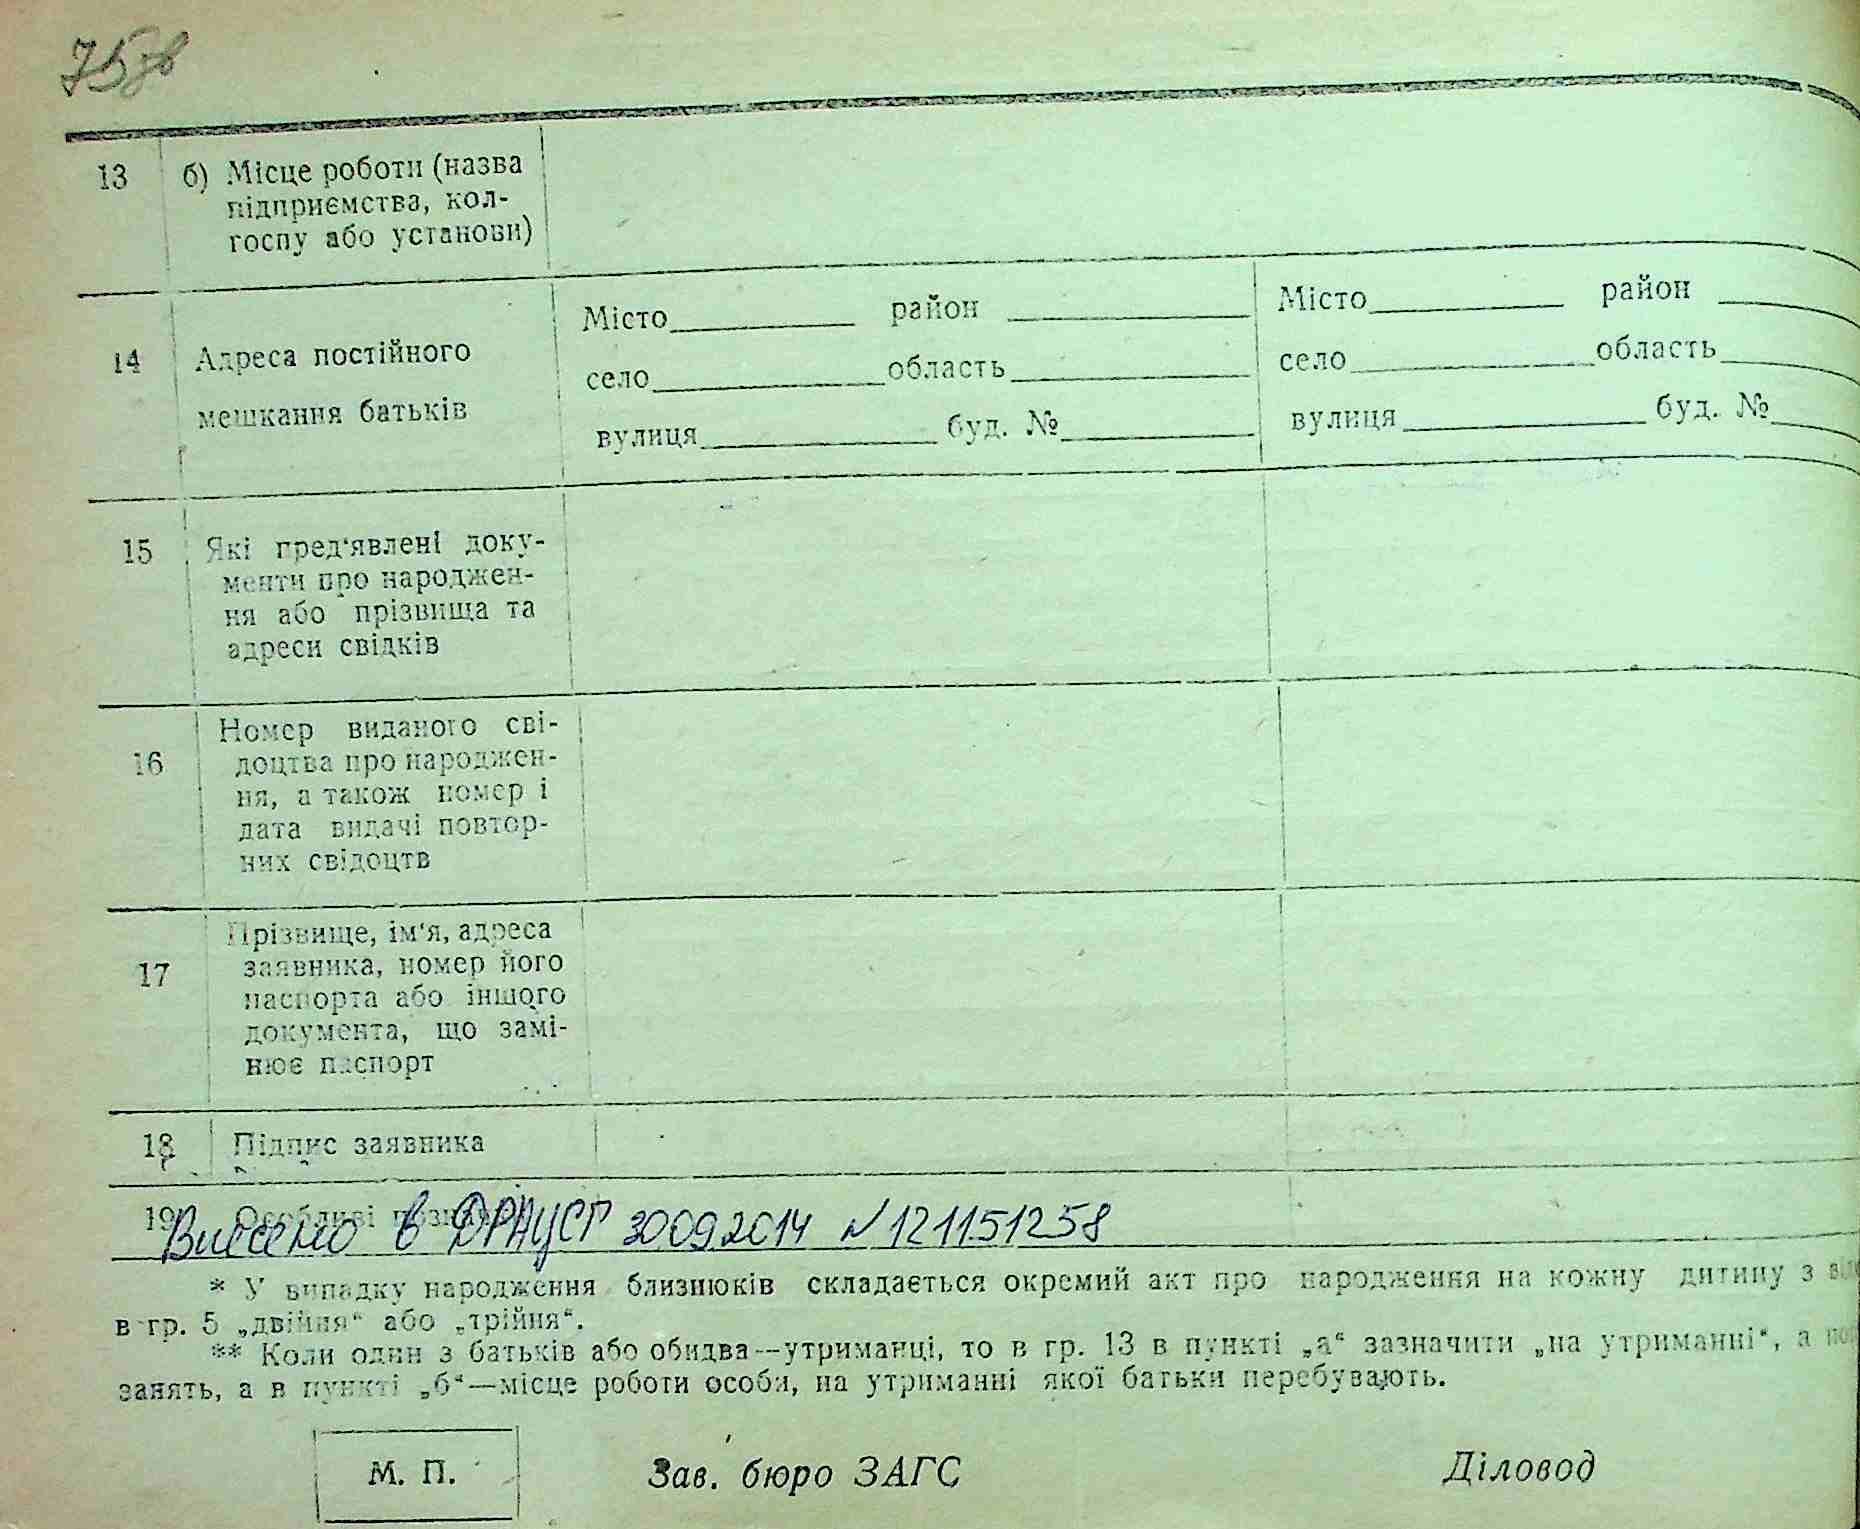 75зв
13 б) Місце роботи (назва
підприємства, кол-
госпу або установи)
14 Адреса постійного
мешкання батьків
Місто район
село область
вулиця буд. №
Місто район
село область
вулиця буд. №
15 Які пред‘явлені доку-
менти про народжен-
ня або прізвища та
адреси свідків
16 Номер виданого сві-
доцтва про народжен-
ня, а також номер і
дата видачі повтор-
них свідоцтв
17 Прізвище, ім‘я, адреса
заявника, номер його
паспорта або іншого
документа, що замі-
нює паспорт
18 Підпис заявника
19 Особливі
Внесено в ДРАЦСГ 30092014 N 121151258
* У випадку народження близнюків складається окремий акт про народження на кожну дитину з
в гр. 5 „двійня“ або „трійня“.
** Коли один з батьків або обидва—утриманці, то в гр. 13 в пункті „а“ зазначити „на утриманні“, а
занять, а в пункті „б“—місце роботи особи, на утриманні якої батьки перебувають.
М. П. Зав. бюро ЗАГС Діловод